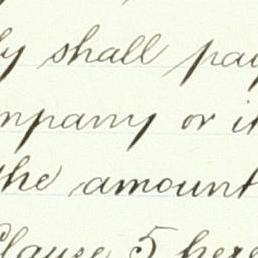 y shall pay
mpany or it
the amount
Clause 5 here